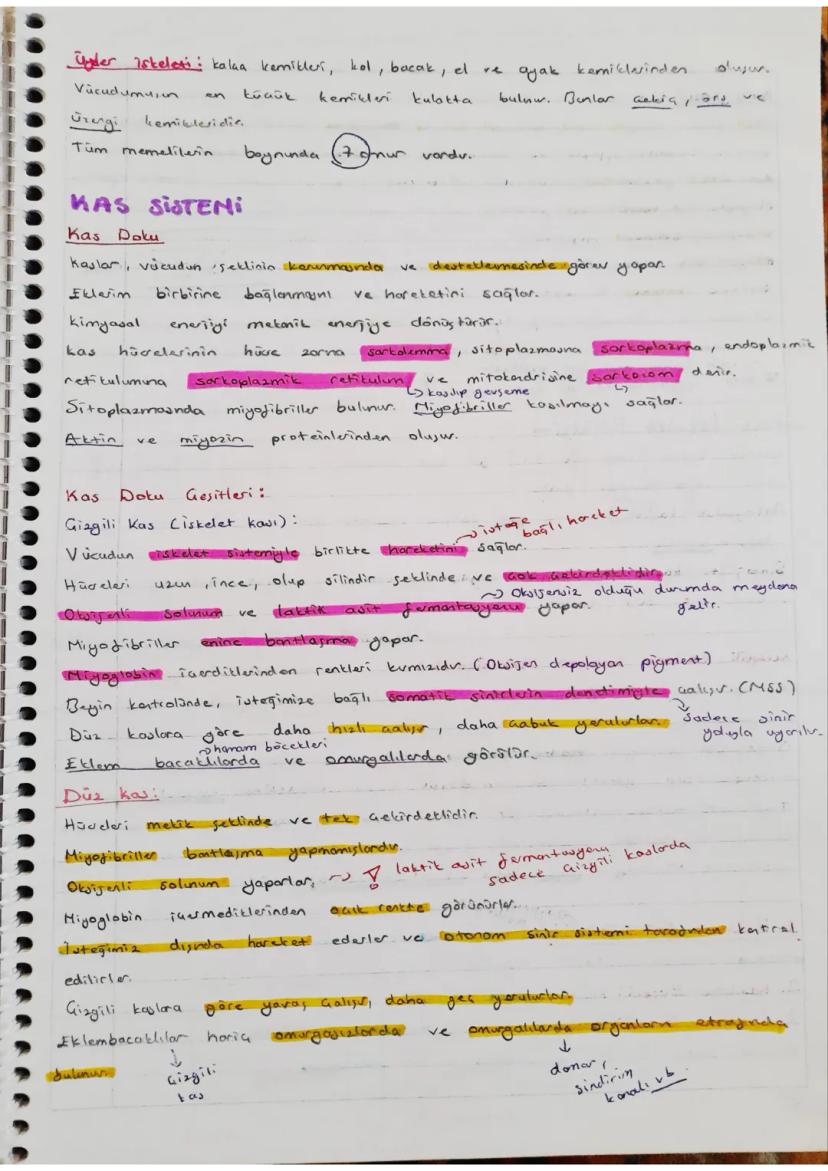 Üyeler iskeleti: kalça kemikleri, kol, bacak, el ve ayak kemiklerinden oluşur.
Vücudumuzun en küçük kemikleri kulakta bulunur. Bunlar çekiç, örs ve
üzengi kemikleridir.
Tüm memelilerin boynunda 7 omur vardır.
KAS SİSTEMİ
Kas Doku
Kaslar, vücudun şeklinin korunmasında ve desteklenmesinde görev yapar.
Eklerin birbirine bağlanmasını ve hareketini sağlar.
Kimyasal enerjiyi mekanik enerjiye dönüştürür.
Kas hücrelerinin hücre zarına sarkolemma, sitoplazmasına sarkoplazma, endoplazmik
retikulumuna sarkoplazmik retikulum ve mitokondrisine sarkozom denir.
↳ kasılıp gevşeme
Sitoplazmasında miyofibriller bulunur. Miyofibriller kasılmayı sağlar.
Aktin ve miyozin proteinlerinden oluşur.
Kas Doku Çeşitleri:
Çizgili Kas (iskelet kası):
→ isteğe bağlı hareket
Vücudun iskelet sistemiyle birlikte hareketini sağlar.
Hücreleri uzun, ince, olup silindir şeklinde ve çok çekirdeklidir.
Oksijenli solunum ve laktik asit fermantasyonu yapar.
→ Oksijensiz olduğu durumda meydana gelir.
Miyofibriller enine bantlaşma yapar.
Miyoglobin içerdiklerinden renkleri kırmızıdır. (Oksijen depolayan pigment)
Beyin kontrolünde, isteğimize bağlı somatik sinirlerin denetimiyle çalışır. (MSS)
Düz kaslara göre daha hızlı çalışır, daha çabuk yorulurlar.
↳ Sadece sinir yoluyla uyarılır.
→ hamam böcekleri
Eklem bacaklılarda ve omurgalılarda görülür.
Düz kas:
Hücreleri mekik şeklinde ve tek çekirdeklidir.
Miyofibriller bantlaşma yapmamışlardır.
Oksijenli solunum yaparlar. → ! laktik asit fermantasyonu sadece çizgili kaslarda
Miyoglobin içermediklerinden açık renkte görünürler.
İsteğimiz dışında hareket ederler ve otonom sinir sistemi tarafından kontrol
edilirler.
Çizgili kaslara göre yavaş çalışır, daha geç yorulurlar.
Eklembacaklılar hariç omurgasızlarda ve omurgalılarda organların etrafında
bulunur.
↓ Çizgili kas
↓ damar, sindirim kanalı vb